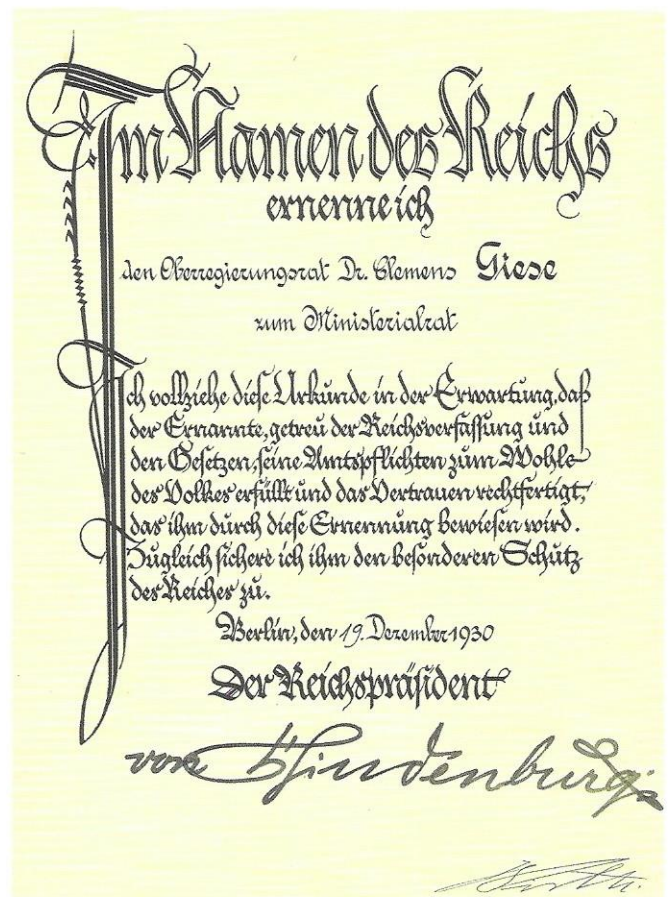 Im Namen des Reichs
ernenne ich
den Oberregierungsrat Dr. Clemens Giese
zum Ministerialrat
Ich vollziehe diese Urkunde in der Erwartung, daß
der Ernannte, getreu der Reichsverfassung und
den Gesetzen, seine Amtspflichten zum Wohle
des Volkes erfüllt und das Vertrauen rechtfertigt,
das ihm durch diese Ernennung bewiesen wird.
Zugleich sichere ich ihm den besonderen Schutz
des Reiches zu.
Berlin, den 19. Dezember 1930
Der Reichspräsident
von Hindenburg